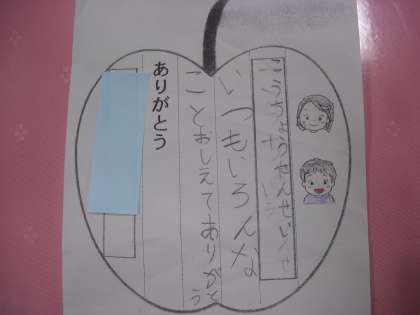 こうちょうせんせい
いつもいろんな
ことおしえてありがとう
ありがとう